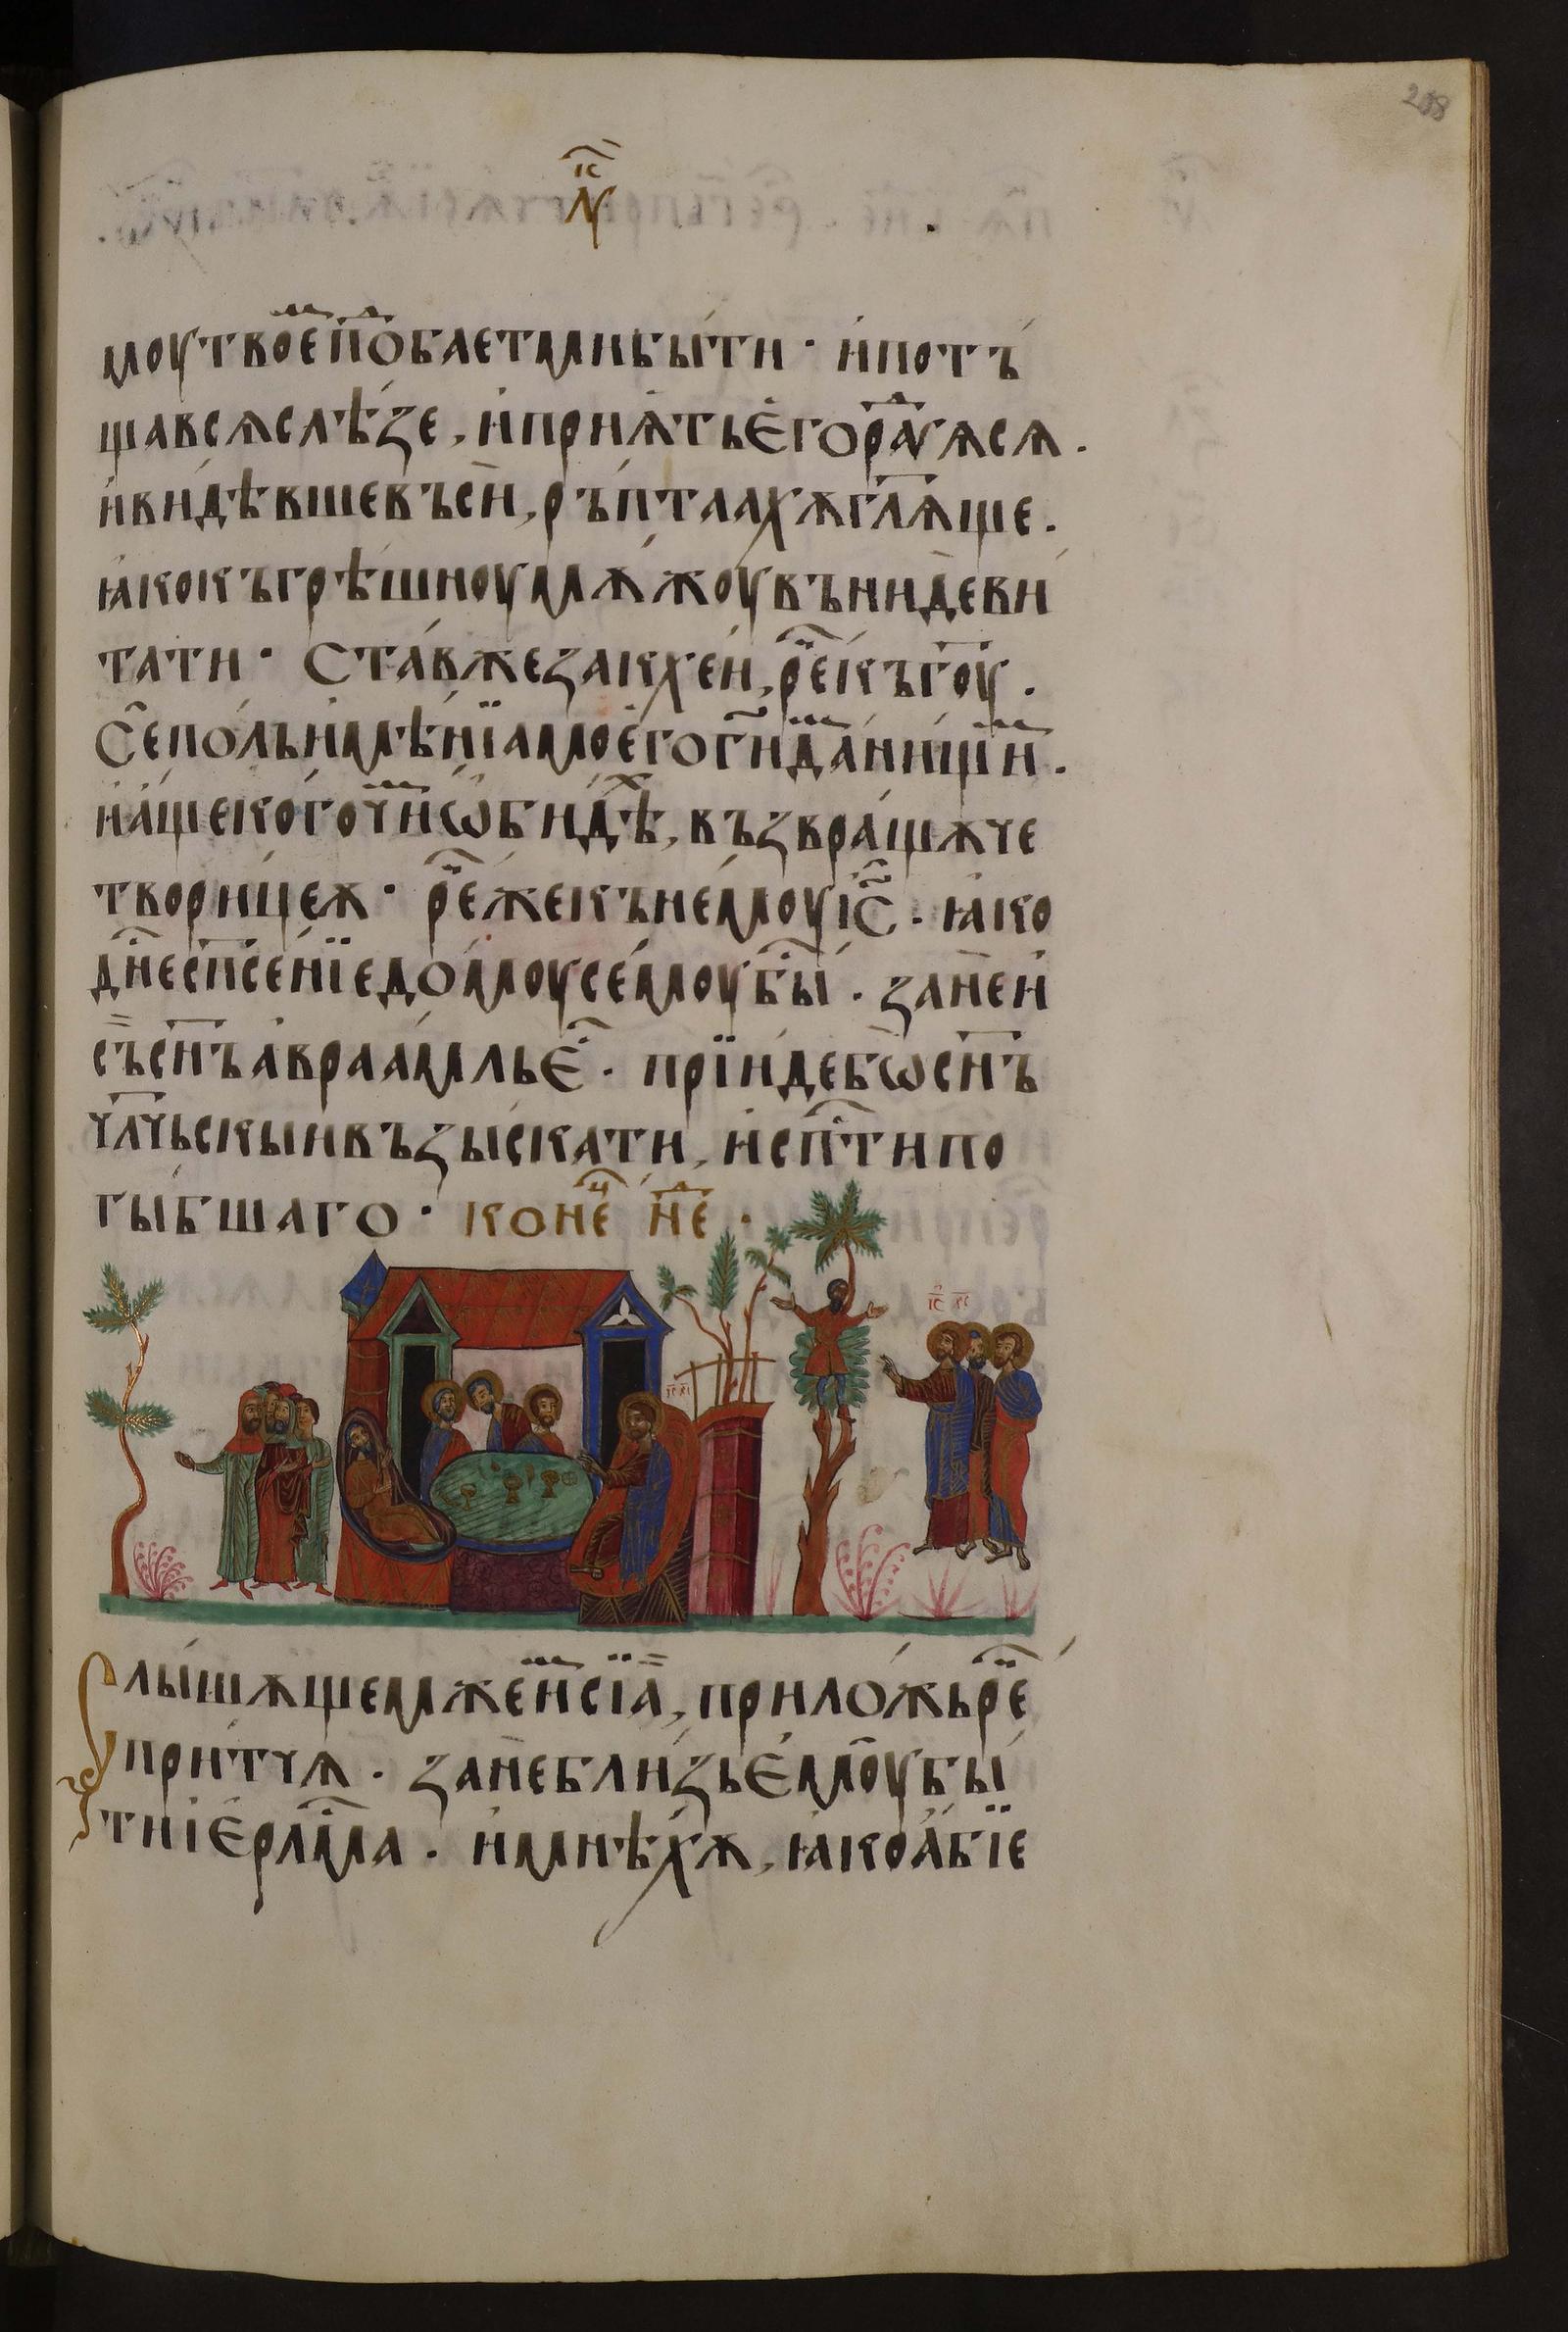 208
моу твое͡м по͡дбает ми быти · и пот
щавсѧ слѣзе, и приѧтъ его ра͡дуѧсѧ ·
и видѣвше въси, ръптаахѫ гл҃ѧще ·
ꙗко къ грѣшноу мѫжоу въниде ви
тати · Став же закхеи, ре͡ч къ гоу҃ ·
Се полъ имѣнїа моего ги҃ да͡м нищи͡м ·
и аще кого чи͡м ѡбидѣ͡х, възвращѫ че
творицеѫ · ре͡ч же къ немоу іс҃ · ꙗко
дне͡с сп҃сенїе домоу семоу бы͡с · зане и
съ сн҃ъ авраамль е͡с · прїиде бѡ сн҃ъ
чл҃чьскыи възыскати, и сп҃сти по
гыбшаго · коне͡ц не͡д ·
іс҃ хс҃
іс҃ хс҃
Слышѫщем же и͡м сїа, приложь ре͡ч
притчѫ · зане близь емоу бы
ти іер҃лма · и мнѣхѫ, ꙗко абїе